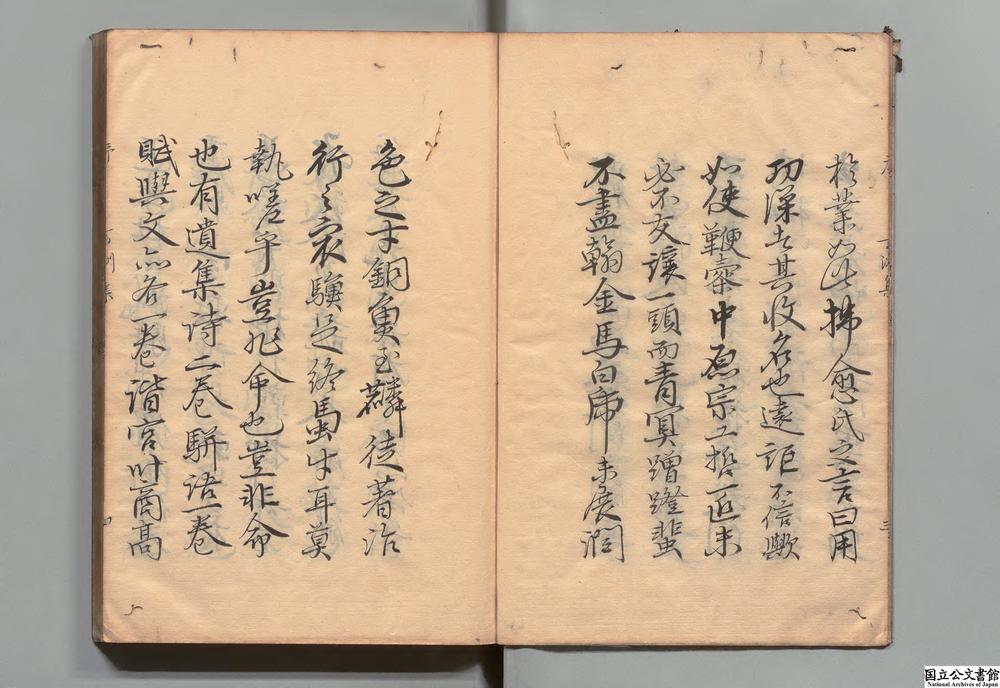 於業如此揚愈氏之言曰用
功深者其收名也遠詎不信歟
如使鞭橐中原宗工哲匠未
必不交讓一頭而青冥蹭蹬蜚
不盡翰金馬白席未展潤
色之才銅魚玉麟徒著治
行之最驥足終馬虫牛耳莫
執嗟乎豈非命也豈非命
也有遺集詩二卷駢語一卷
賦與文亦各一卷諧官時商高
国立公文書館
National Archives of Japan